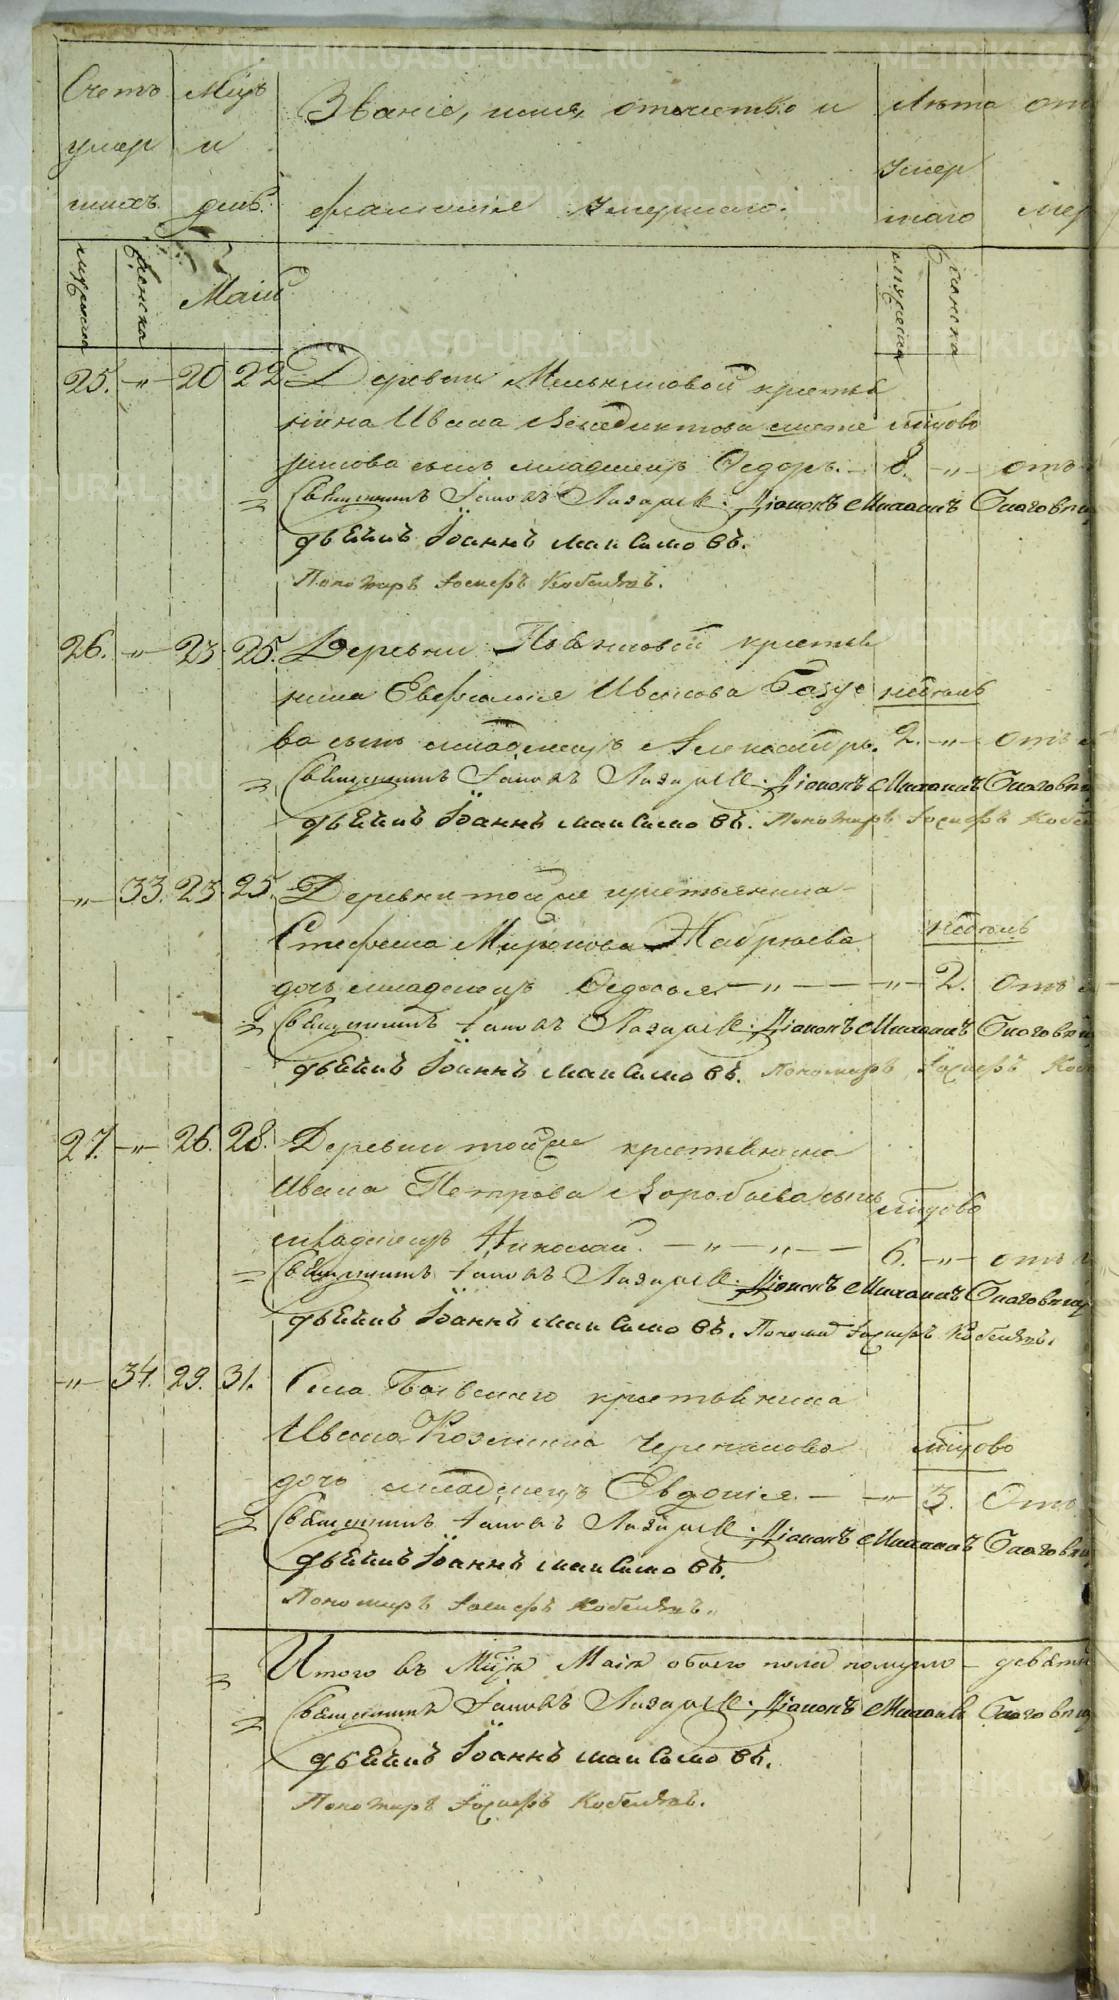 Счетъ Мцъ Званіе, имя, отечество и Лѣта от
умер и умер
шихъ день. фамилія умершаго. шаго мер
мужеска женска Маій мужеска женска
25. " 20 22 Деревни Мельниковой крестья
нина Ивана Венедиктова мцово
сынъ младенецъ Ѳедоръ. 8. " отъ
Священникъ Іаковъ Лазаревъ. Діаконъ Михаилъ Благовѣщ
дьячекъ Іоаннъ Максимовъ.
Пономарь Іосифъ Кобелевъ.
26. " 23 25. Деревни крестья
нина Евфимія Иванова недѣль
ва сынъ младенецъ Александръ. 2. " отъ
Священникъ Іаковъ Лазаревъ. Діаконъ Михаилъ Благовѣщ
дьячекъ Іоаннъ Максимовъ. Пономарь Іосифъ Кобел
" 33. 23 25. Деревни тойже крестьянина
Стефана Миронова Жабрѣева недѣль
дочь младенецъ Ѳедосья " " 2. отъ
Священникъ Іаковъ Лазаревъ. Діаконъ Михаилъ Благовѣщ
дьячекъ Іоаннъ Максимовъ. Пономарь Іосифъ Коб
27. " 26. 28. Деревни тойже крестьянина
Ивана Петрова Воробьева сынъ мцово
младенецъ Николай. " " 6. " отъ
Священникъ Іаковъ Лазаревъ. Діаконъ Михаилъ Благовѣщ
дьячекъ Іоаннъ Максимовъ. Поном Іосифъ Кобелевъ.
" 34. 29. 31. Села крестьянина
Ивана Козмина Черепанова мцово
дочь младенецъ Евдокія " 3. Отъ
Священникъ Іаковъ Лазаревъ. Діаконъ Михаилъ Благовѣщ
дьячекъ Іоаннъ Максимовъ.
Пономарь Іосифъ Кобелевъ.
Итого въ Мцѣ Маіѣ обоего пола померло девять
Священникъ Іаковъ Лазаревъ. Діаконъ Михаилъ Благовѣщ
дьячекъ Іоаннъ Максимовъ.
Пономарь Іосифъ Кобелевъ.
METRIKI.GASO-URAL.RU